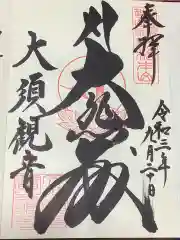 奉拝
令和三年
九月二十日
大悲殿
大須観音